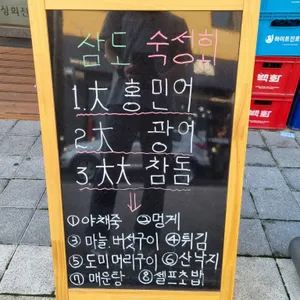 삼도 숙성회
1. 大 홍민어
2. 大 광어
3. 大大 참돔
↓
① 야채죽 ② 멍게
③ 마늘.버섯구이 ④ 튀김
⑤ 도미머리구이 ⑥ 산낙지
⑦ 매운탕 ⑧ 셀프초밥
하이트진로